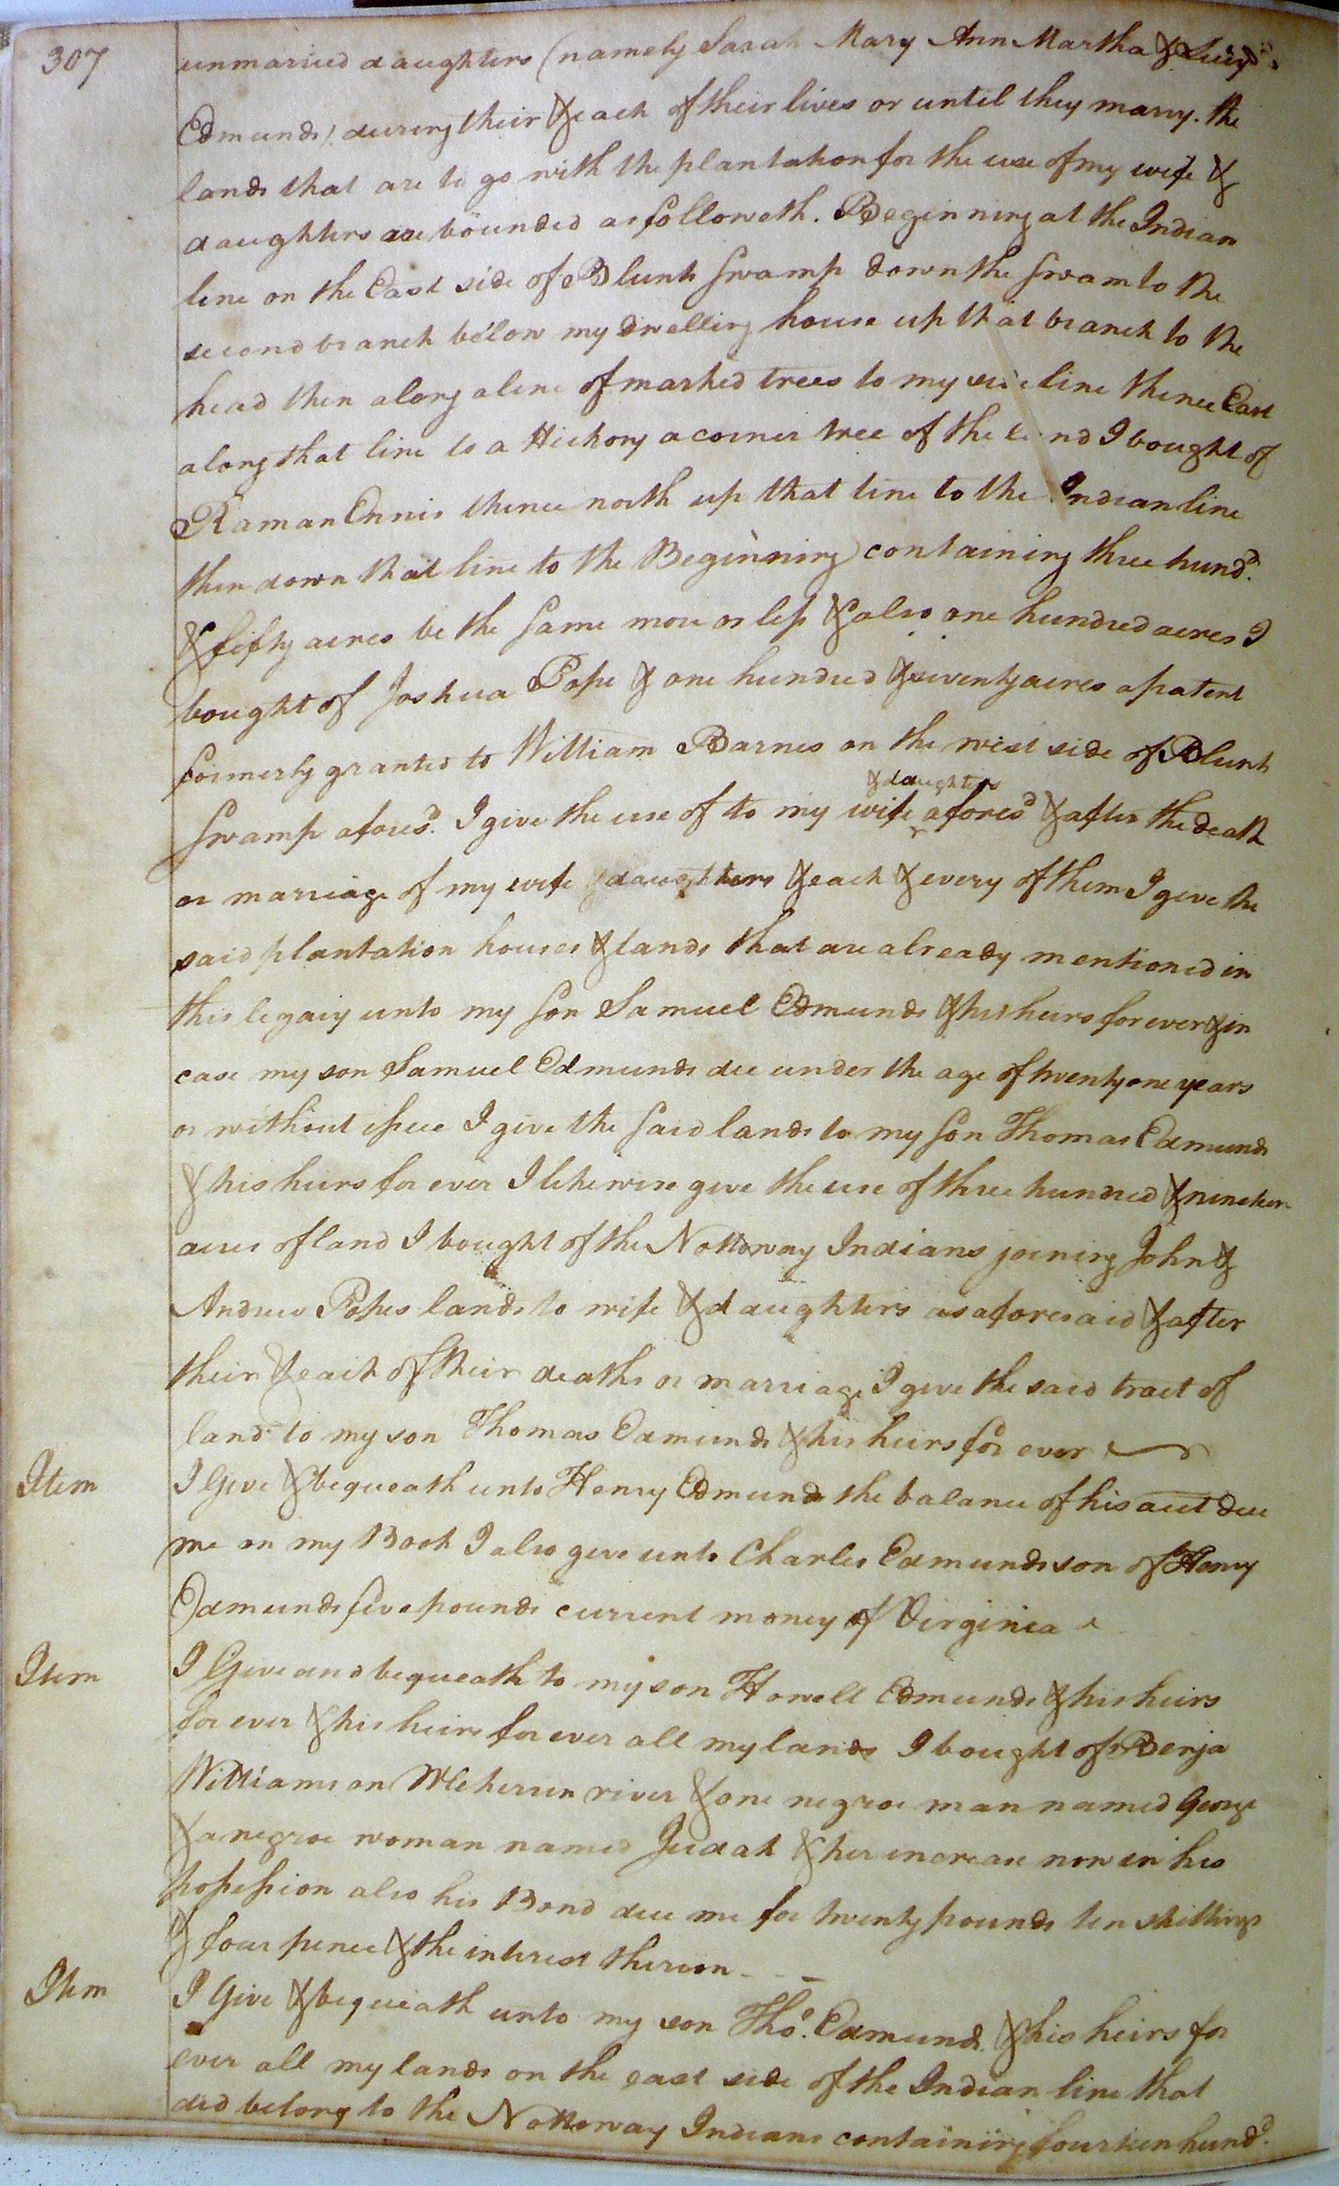 307
unmarried daughters (namely Sarah Mary Ann Martha & Lucy
Edmunds) during their & each of their lives or until they marry. the
lands that are to go with the plantation for the use of my wife &
daughters are bounded as followeth. Beginning at the Indian
line on the East side of Blunts Swamp down the Swam to the
second branch below my dwelling house up that branch to the
head then along a line of marked trees to my line thence East
along that line to a Hickory a corner tree of the land I bought of
Raman Ennis thence north up that line to the Indian line
then down that line to the Beginning containing three hund.d
& fifty acres be the same more or less & also one hundred acres I
bought of Joshua Pope & one hundred & seventy acres a patent
formerly granted to William Barnes on the west side of Blunts
& daughters
Swamp afores.d I give the use of to my wife afores.d & after the death
or marriage of my wife & daughters & each & every of them I give the
said plantation houses & lands that are already mentioned in
this legacy unto my son Samuel Edmunds & his heirs for ever & in
case my son Samuel Edmunds die under the age of twenty one years
or without issue I give the said lands to my son Thomas Edmunds
& his heirs for ever I likewise give the use of three hundred & nineteen
acres of land I bought of the Nottoway Indians joining John &
Andrew Popes lands to wife & daughters as aforesaid & after
their & each of their deaths or marriage I give the said tract of
land to my son Thomas Edmunds & his heirs for ever
Item I Give & bequeath unto Henry Edmunds the balance of his acct due
me on my Book I also give unto Charles Edmunds son of Henry
Edmunds five pounds current money of Virginia
Item I Give and bequeath to my son Howell Edmunds & his heirs
for ever & his heirs for ever all my lands I bought of Benja
Williams on Meherrin river & one negroe man named George
& a negroe woman named Judah & her increase now in his
possession also his Bond due me for twenty pounds ten shillings
& four pence & the interest thereon
Item I Give & bequeath unto my son Tho.s Edmunds & his heirs for
ever all my lands on the east side of the Indian line that
did belong to the Nottoway Indians containing fourteen hund.d